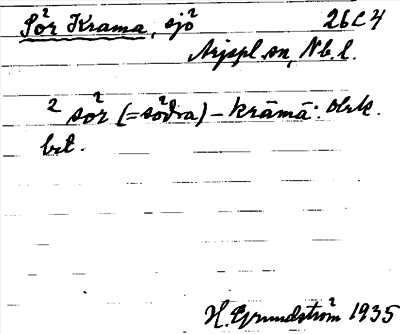 Sör Krama, sjö 26L4
Arjepl. sn, Nb. l.
2 sör (= södra) - krāmā: obek.
bet.
H. Grundström 1935